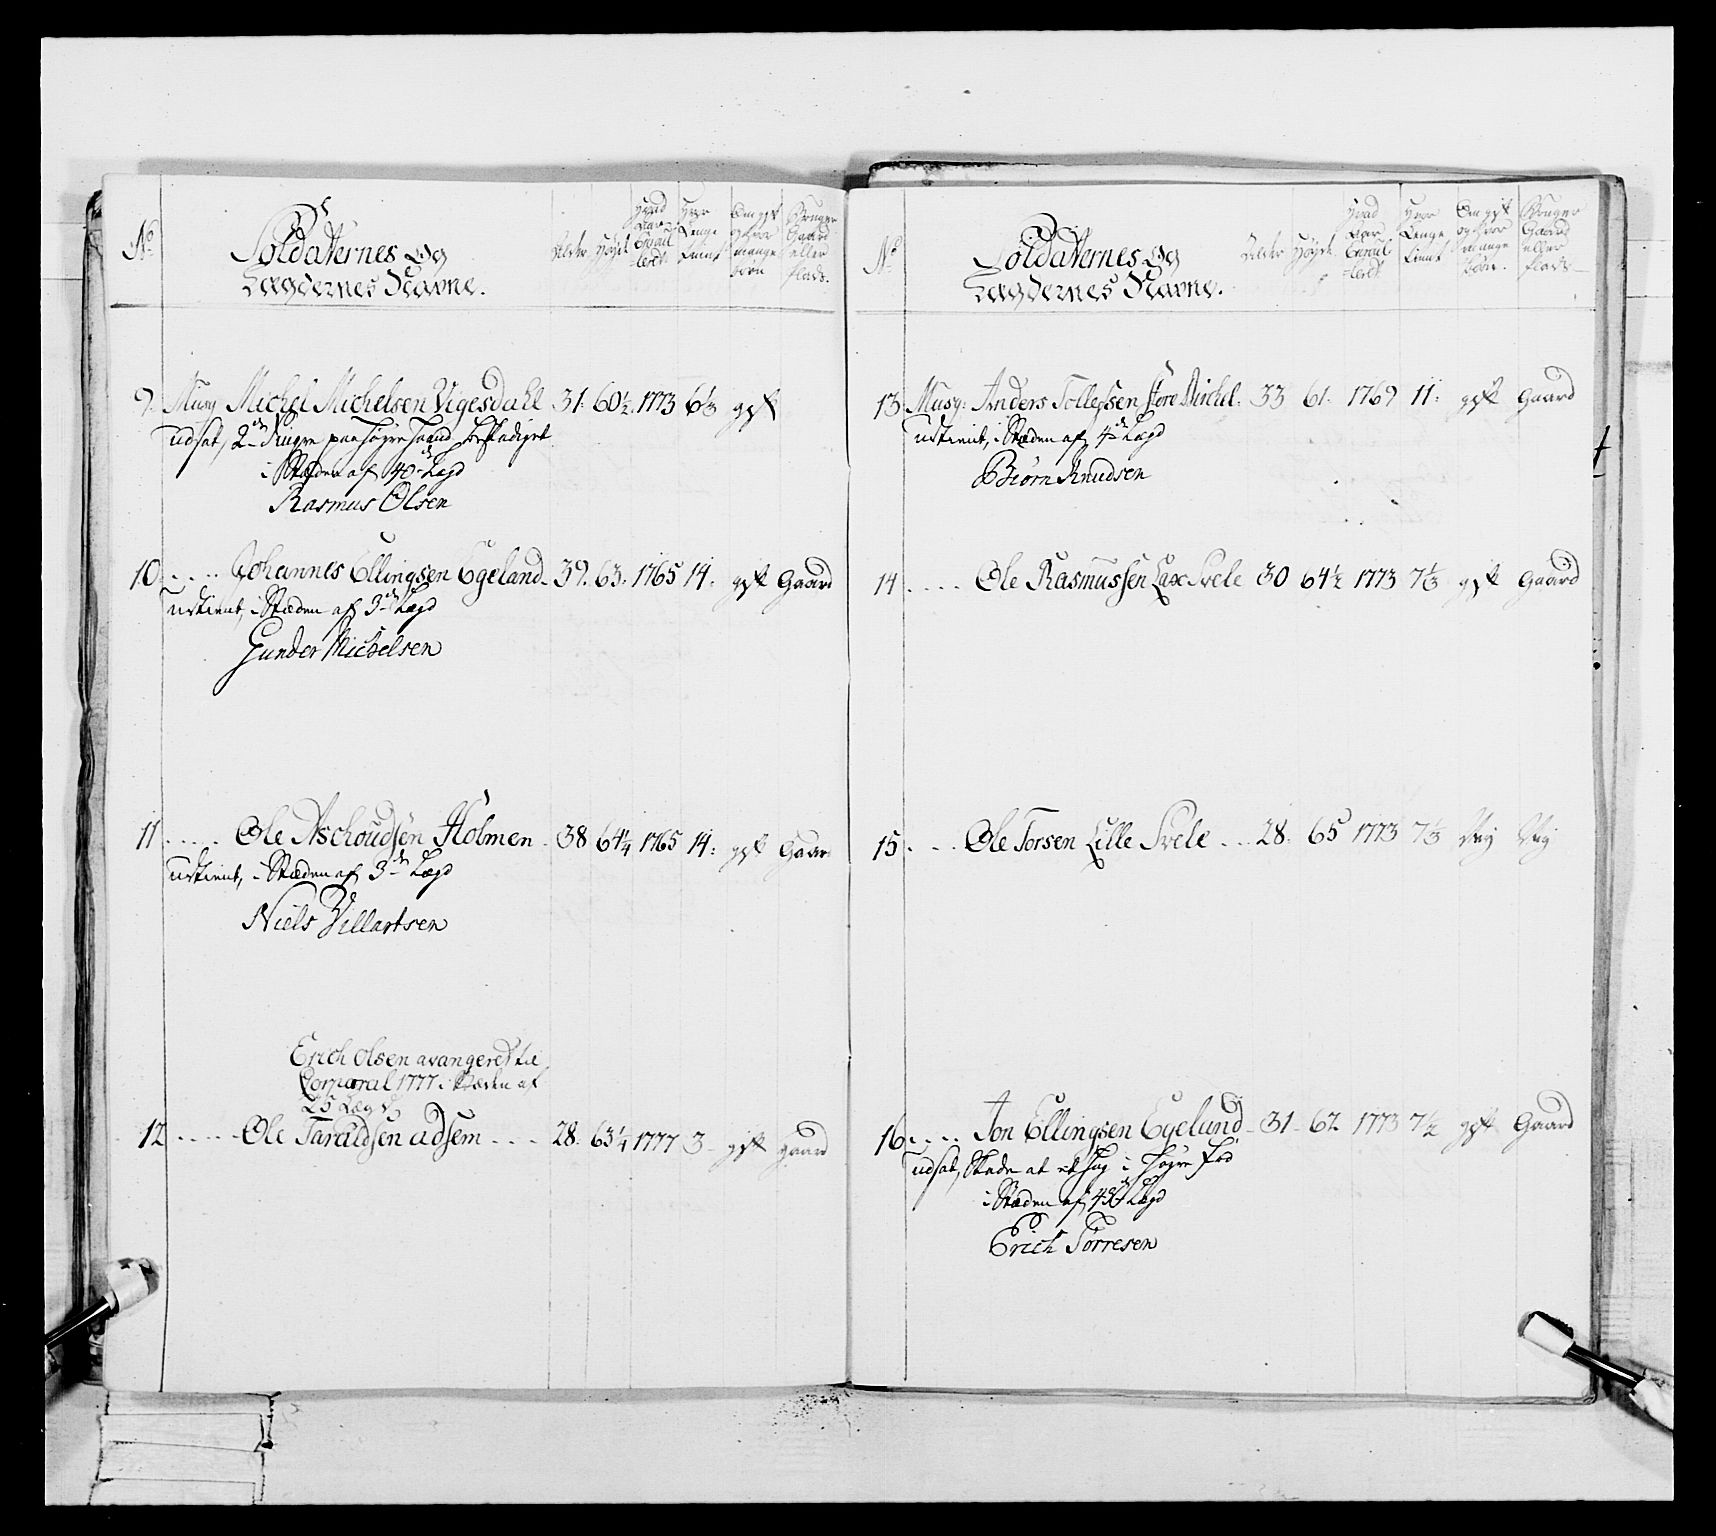 No
Soldatternes og
Lægdernes Navne.
Alder
Høyde
Hvad
Aar
Enroul
leret
Hvor
Lenge
tient
Om gift
og hvor
mange
børn
Bruger
Gaard
eller
Plads.
9. Musq Michel Michelsen Vigesdahl 31. 60½. 1773 6⅓ gift
udsat, 2de Fingre paa høyre Haand beskadiget
i Stæden af 40de Lægd
Rasmus Olsen
10. . . . . Johannes Ellingsen Egeland. 39. 63. 1765 14. gift Gaard
udtient, i Stæden af 3de Lægd
Gunder Michelsen
11. . . . . Ole Aschoudsen Holmen. 38 64¼ 1765 14: gift Gaar
udtient, i Stæden af 3de Lægd
Niels Villartsen
Erich Olsen avangered til
Corporal 1777 i Stæden af
25 Lægd
12. . . . . Ole Taraldsen adsem . . . . 28. 63¼ 1777 3 gift gaard
No
Soldatternes og
Lægdernes Navne.
Alder
Høyde
Hvad
Aar
Enroul
leret
Hvor
Lenge
tient
Om gift
og hvor
mange
børn.
Bruger
Gaard
eller
Plads
13. Musq: Anders Tollefsen store 33 61. 1769 11: gift Gaard
udtient, i Stæden af 4de Lægd
Biørn Knudsen
14. . . . . Ole Rasmussen Svele 30 64½ 1773 7⅓ gift Gaard
15. . . . Ole Torsen Lille Svele . . . 28. 65 1773 7⅓ Ney Ney
16. . . . Jon Ellingsen Egelund 31 62 1773 7½ gift Gaard
udsat, Skade af et hug i høyre fod
i Stæden af Lægd
Erich Torresen